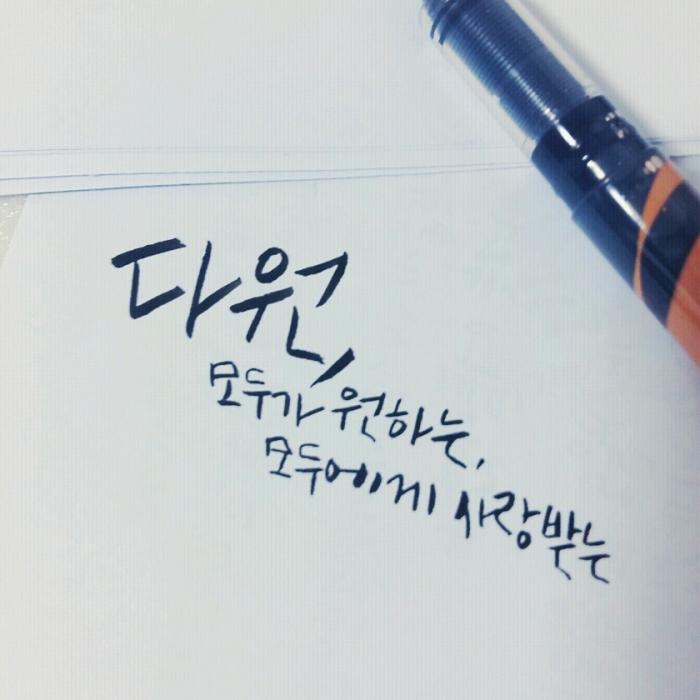 다원,
모두가 원하는,
모두에게 사랑받는